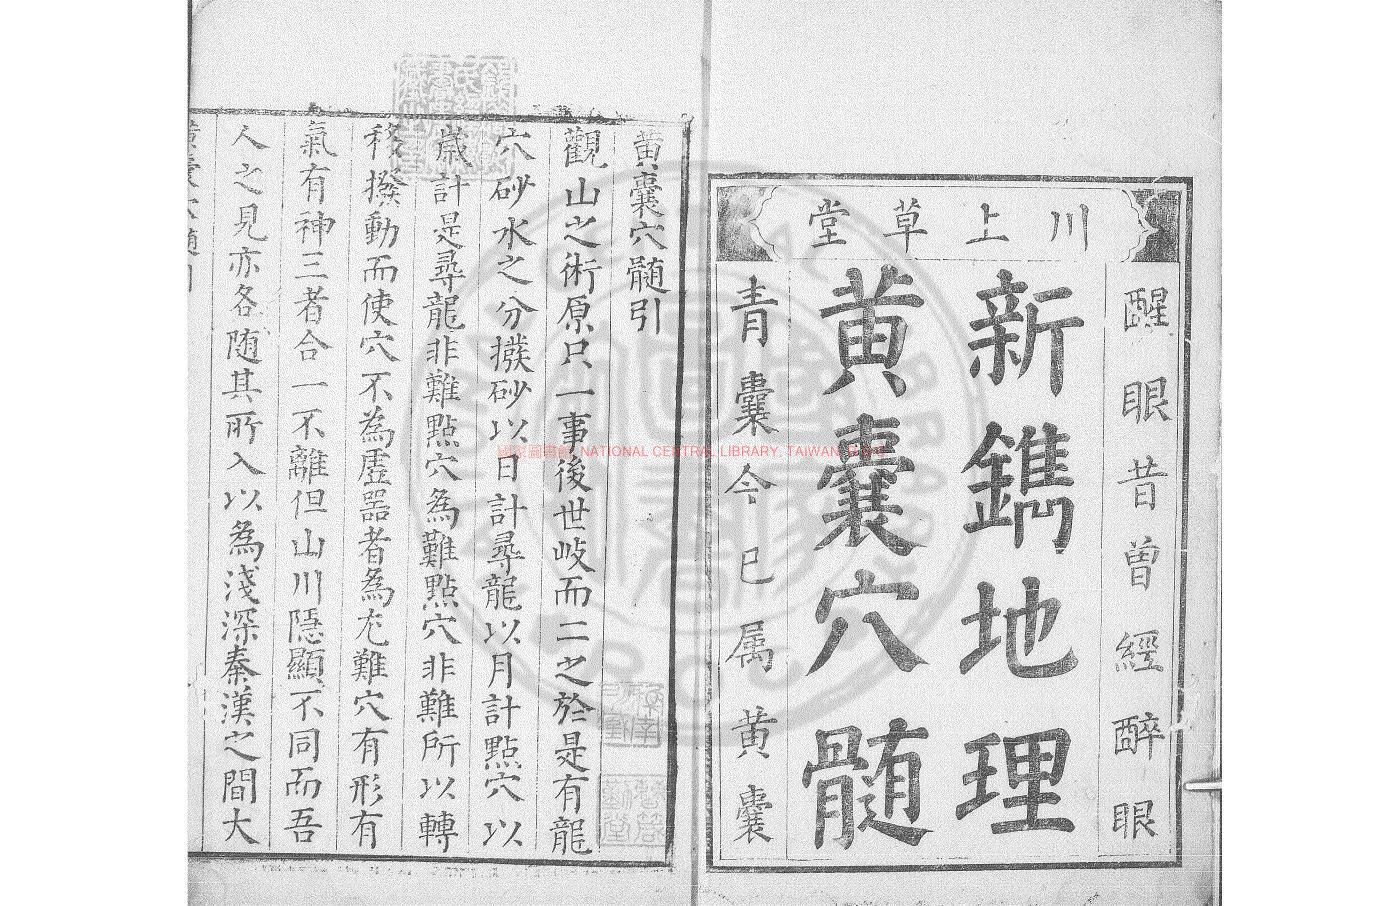 川上草堂
醒眼昔曾經醉眼
新鐫地理
黄囊穴髄
青囊今已属黄囊
黄囊穴髄引
觀山之術原只一事後世岐而二之於是有龍
穴砂水之分撥砂以日計尋龍以月計點穴以
歲計是尋龍非難點穴為難點穴非難所以轉
移撥動而使穴不為虛器者為尤難穴有形有
氣有神三者合一不離但山川隱顯不同而吾
人之見亦各随其所入以為淺深秦漢之間大
國家圖書館, NATIONAL CENTRAL LIBRARY, TAIWAN